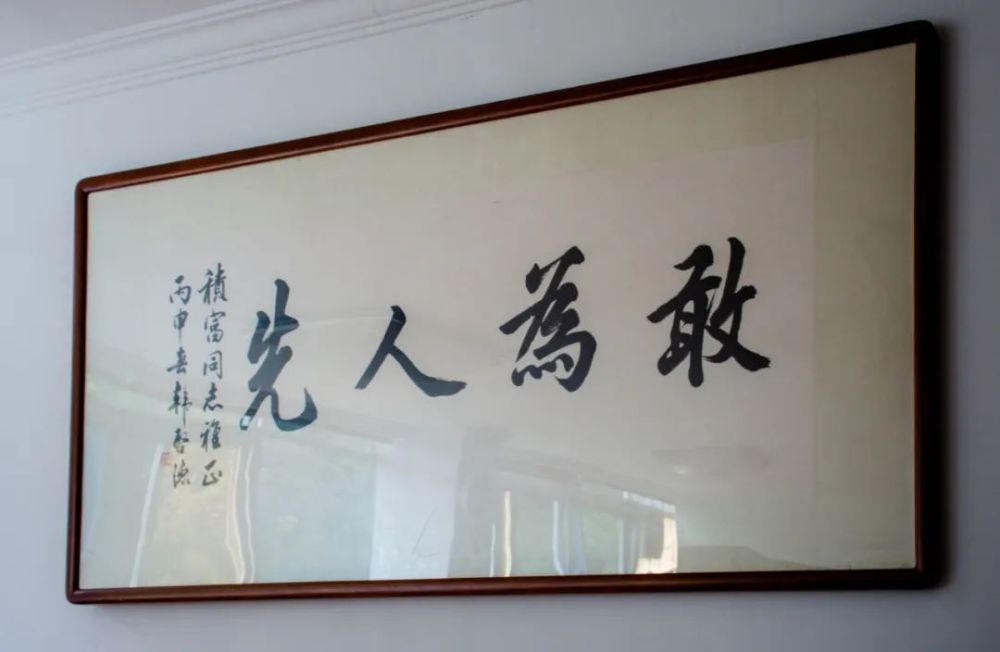 敢為人先
積富同志雅正
丙申春韩啓德